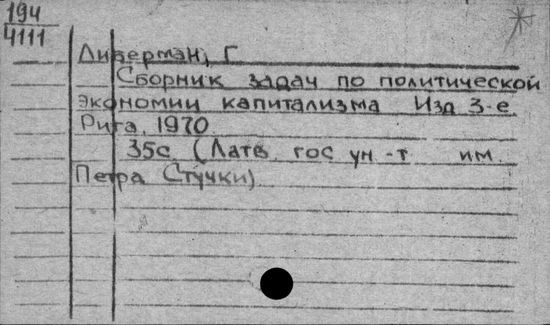 194
4111
Ливерман, Г
Сборник задач по политической
экономии капитализма Изд 3-е.
Рига, 1970
35с. (Латв. гос ун-т им.
Петра Стучки)